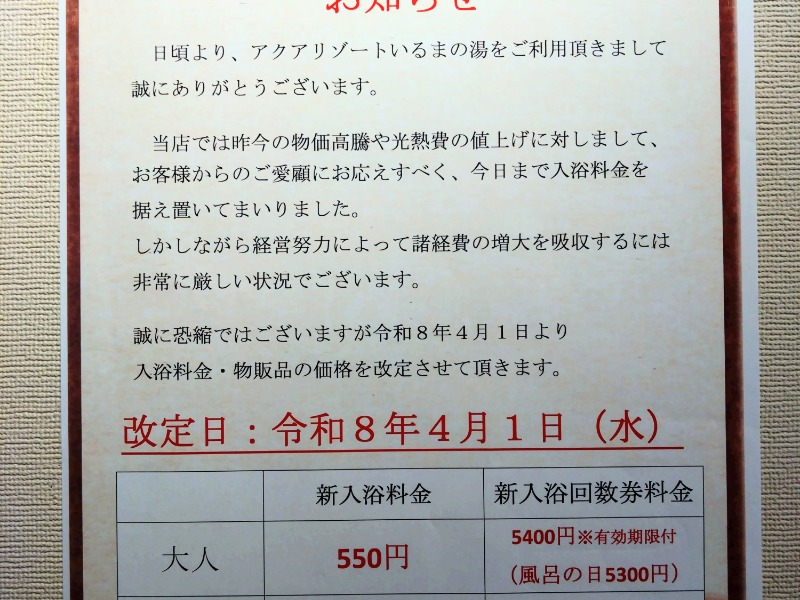 お知らせ
日頃より、アクアリゾートいるまの湯をご利用頂きまして
誠にありがとうございます。
当店では昨今の物価高騰や光熱費の値上げに対しまして、
お客様からのご愛顧にお応えすべく、今日まで入浴料金を
据え置いてまいりました。
しかしながら経営努力によって諸経費の増大を吸収するには
非常に厳しい状況でございます。
誠に恐縮ではございますが令和８年４月１日より
入浴料金・物販品の価格を改定させて頂きます。
改定日：令和８年４月１日（水）
新入浴料金 新入浴回数券料金
大人 550円 5400円※有効期限付
（風呂の日5300円）